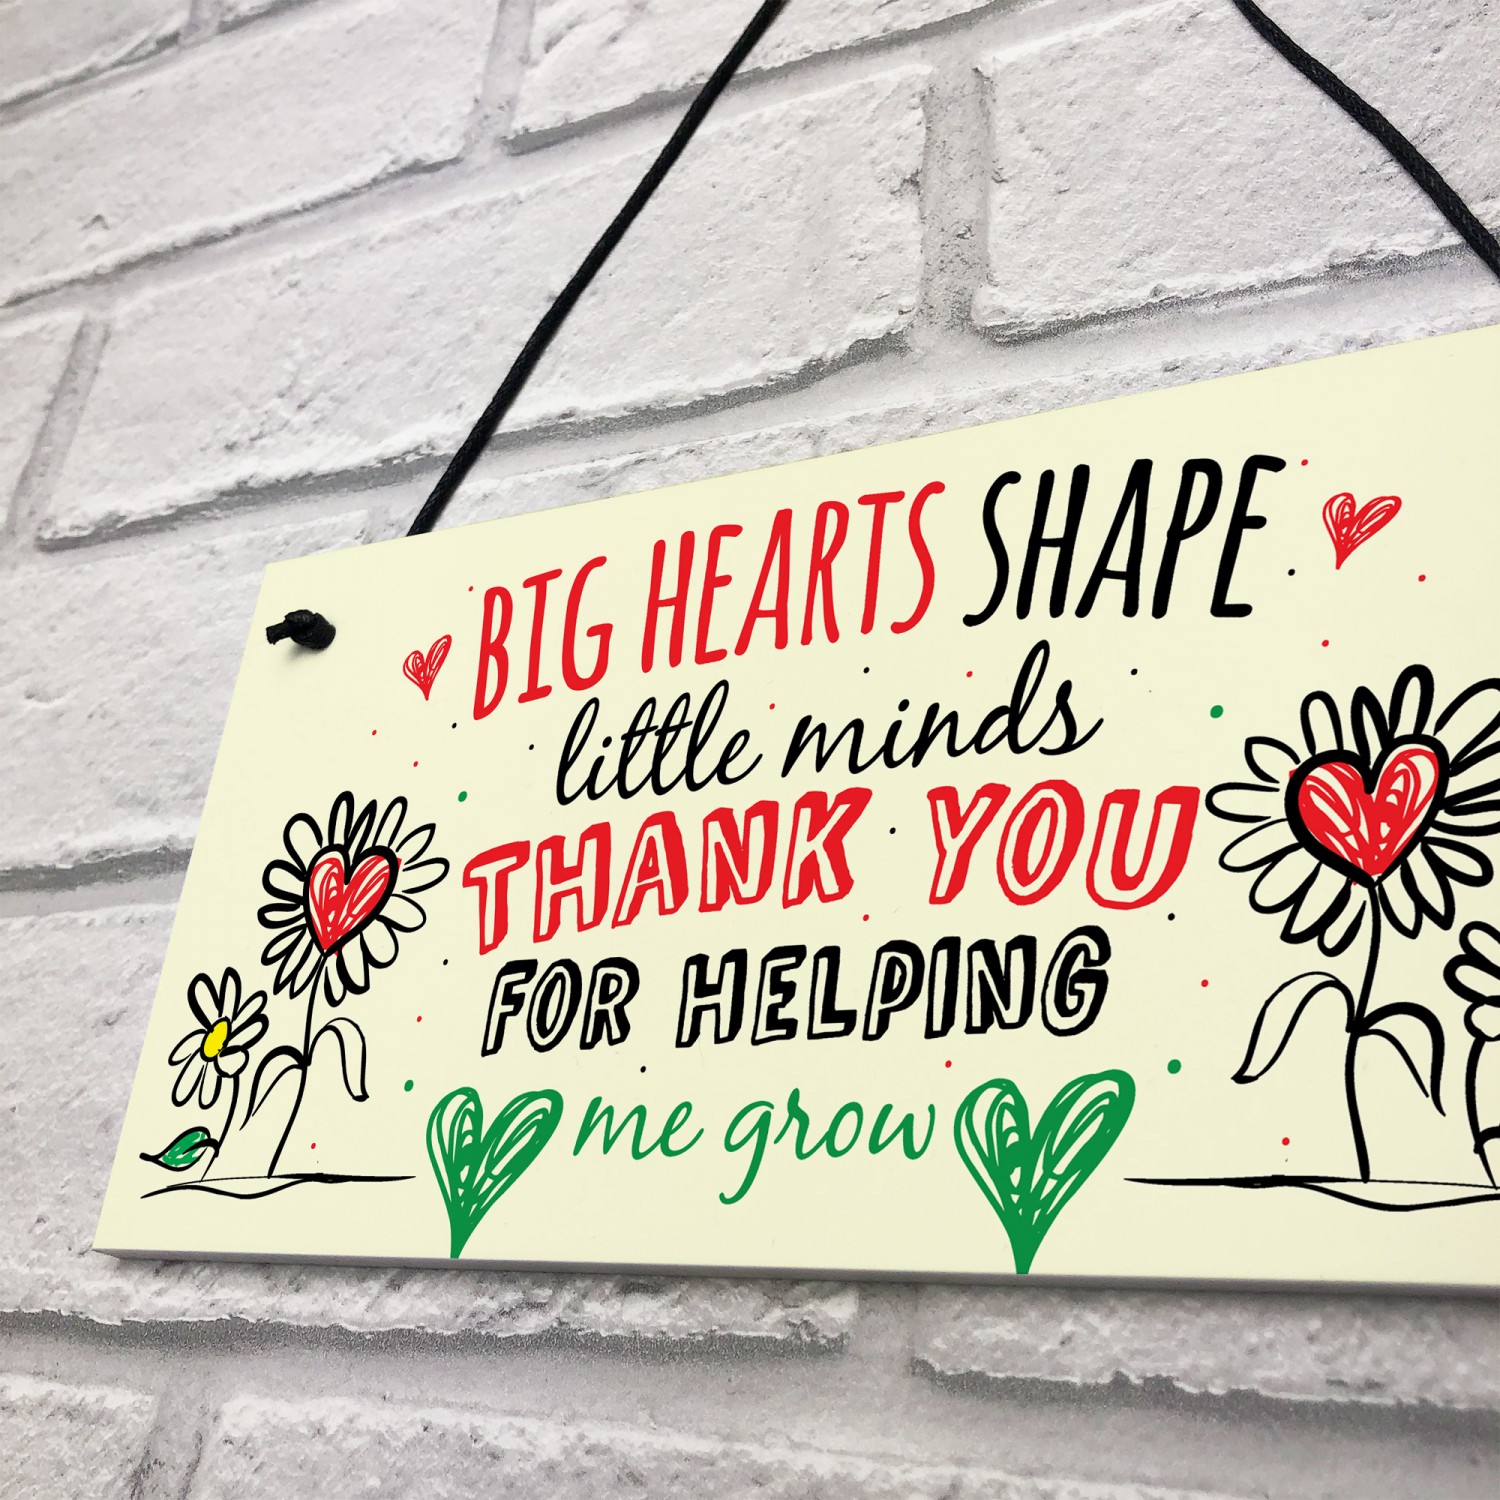 BIG HEARTS SHAPE
little minds
THANK YOU
FOR HELPING
me grow